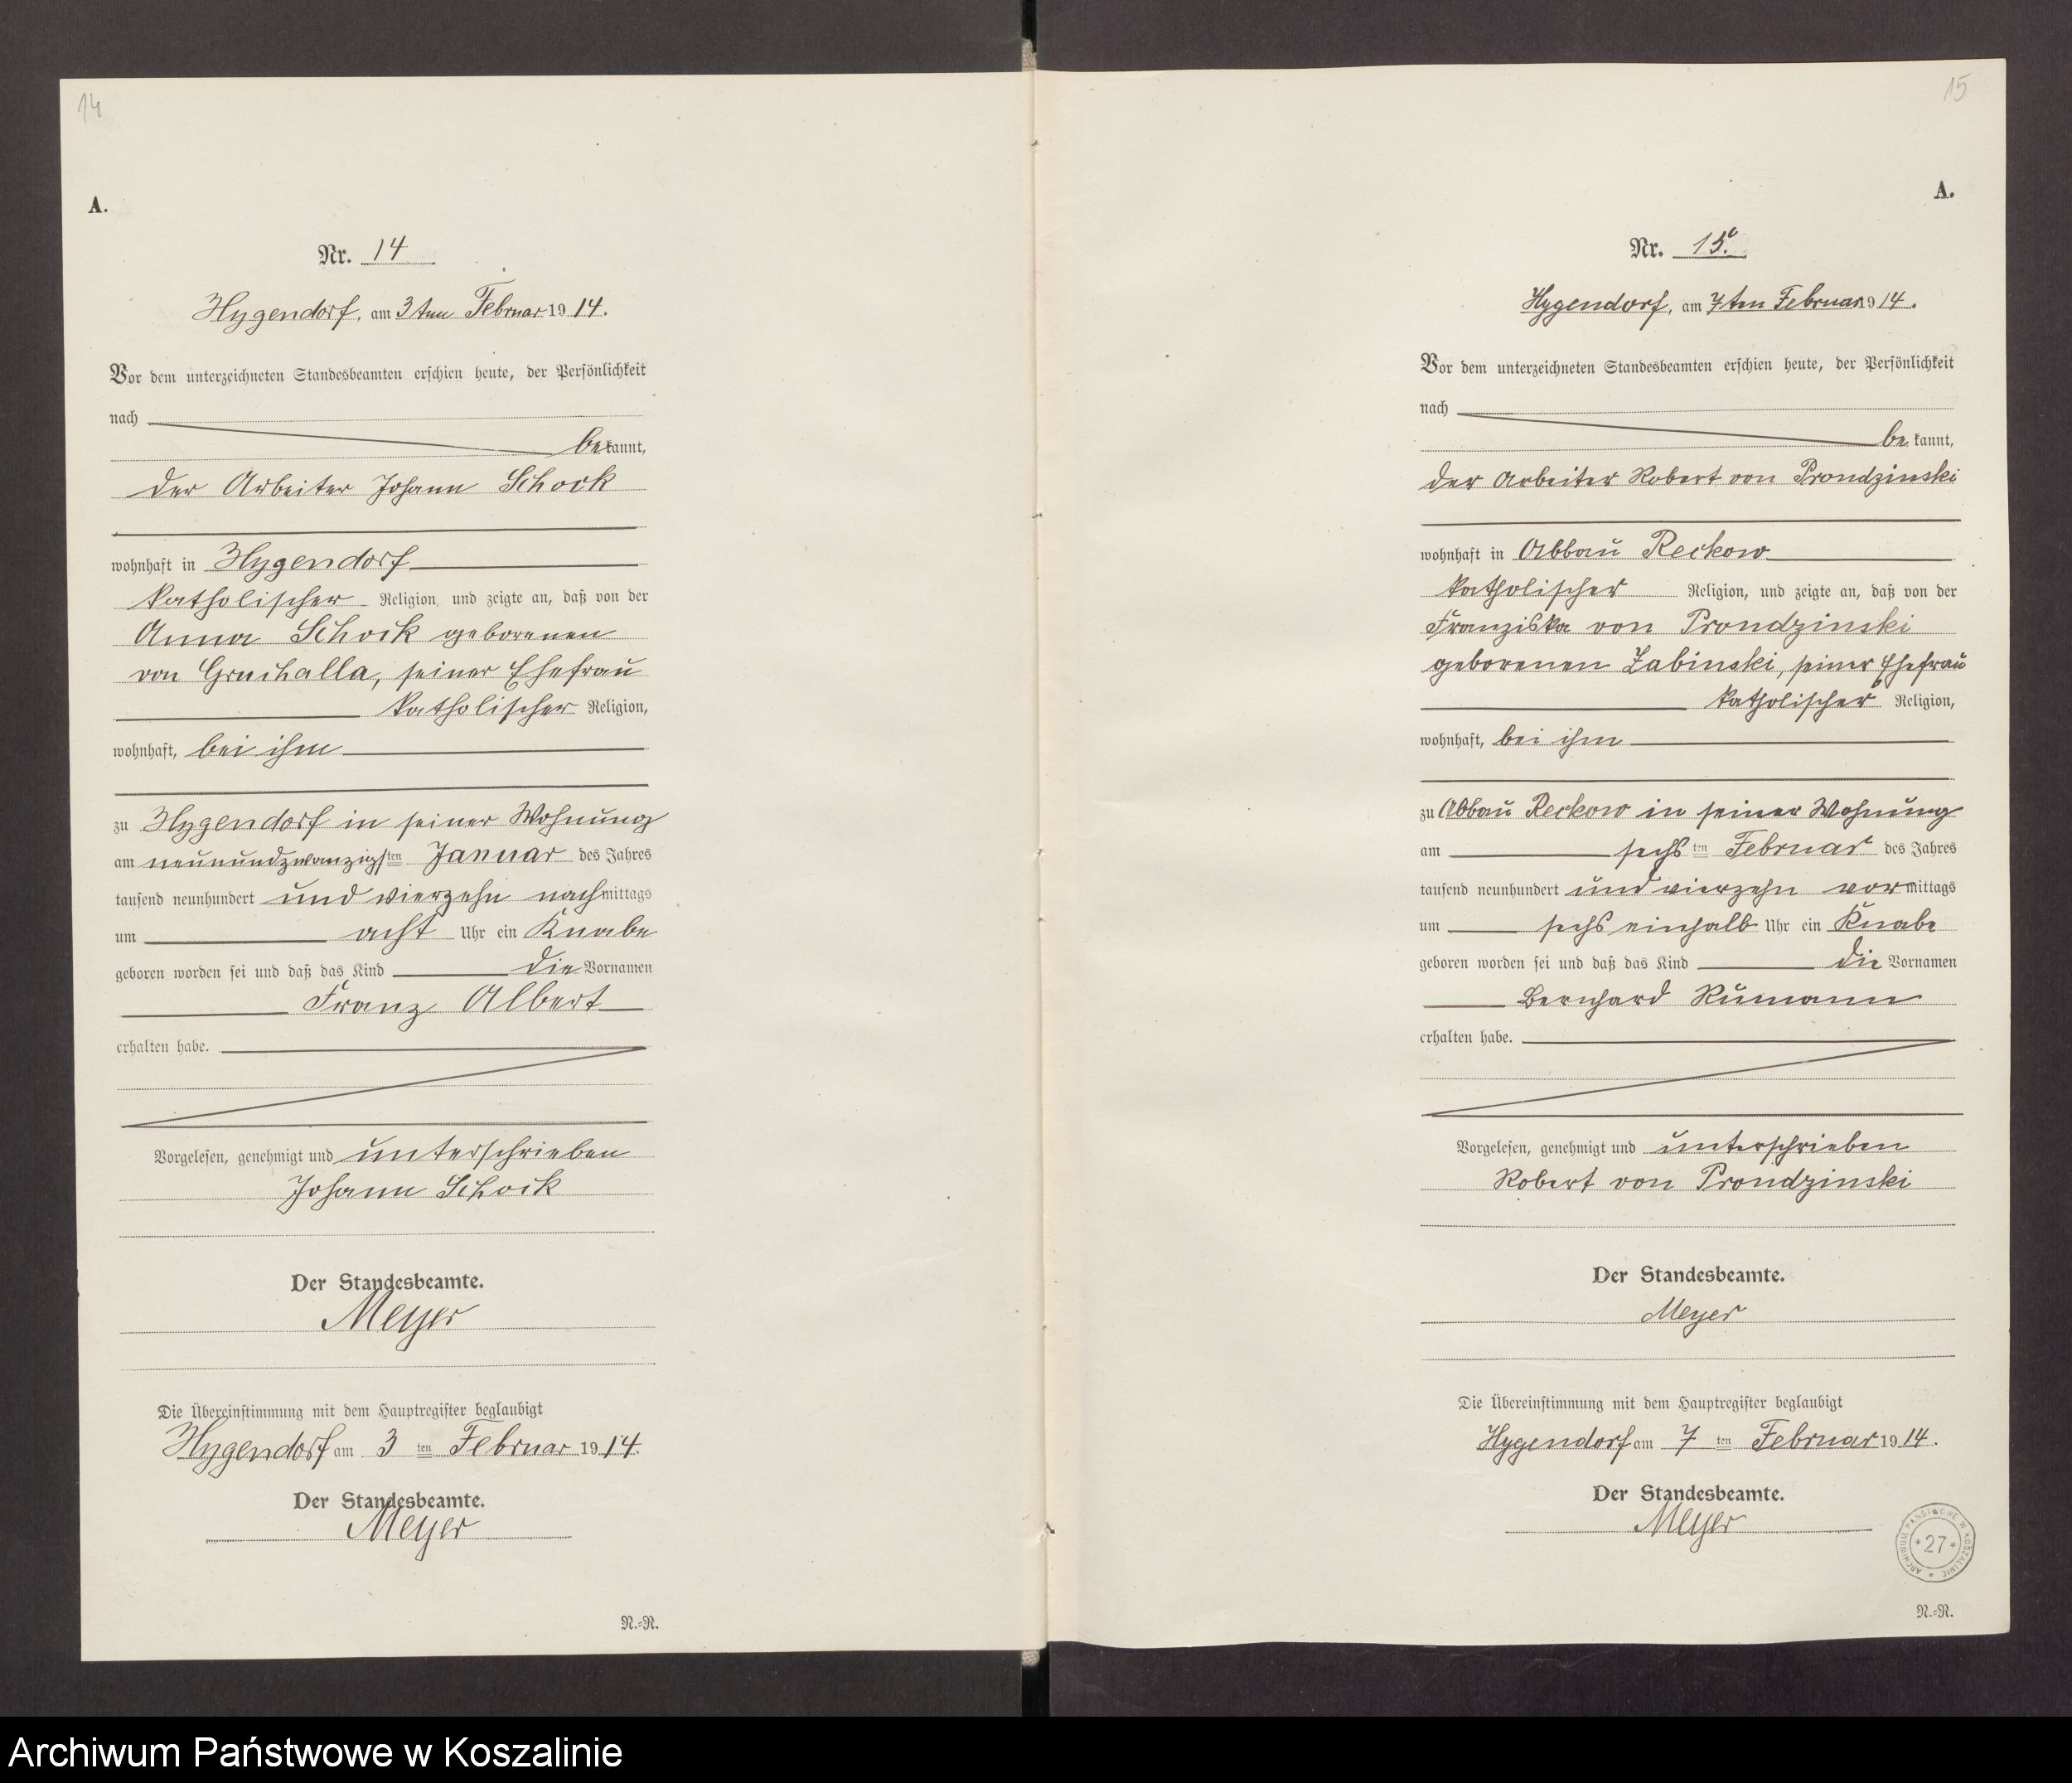 14
A.
Nr. 14
Hygendorf, am 3ten Februar 1914.
Vor dem unterzeichneten Standesbeamten erschien heute, der Persönlichkeit
nach
bekannt,
der Arbeiter Johann Schock
wohnhaft in Hygendorf
katholischer Religion, und zeigte an, daß von der
Anna Schock geborenen
von Gruchalla, seiner Ehefrau
katholischer Religion,
wohnhaft, bei ihm
zu Hygendorf in seiner Wohnung
am neunundzwanzigsten Januar des Jahres
tausend neunhundert und vierzehn nachmittags
um acht Uhr ein Knabe
geboren worden sei und daß das Kind die Vornamen
Franz Albert
erhalten habe.
Vorgelesen, genehmigt und unterschrieben
Johann Schock
Der Standesbeamte.
Meyer
Die Übereinstimmung mit dem Hauptregister beglaubigt
Hygendorf am 3 ten Februar 1914.
Der Standesbeamte.
Meyer
N.-R.
15
A.
Nr. 15.
Hygendorf, am 7ten Februar 1914.
Vor dem unterzeichneten Standesbeamten erschien heute, der Persönlichkeit
nach
bekannt,
der Arbeiter Robert von Prondzinski
wohnhaft in Abbau Reckow
katholischer Religion, und zeigte an, daß von der
Franziska von Prondzinski
geborenen Zabinski, seiner Ehefrau
katholischer Religion,
wohnhaft, bei ihm
zu Abbau Reckow in seiner Wohnung
am sechs ten Februar des Jahres
tausend neunhundert und vierzehn vormittags
um sechs einhalb Uhr ein Knabe
geboren worden sei und daß das Kind die Vornamen
Bernhard Rumann
erhalten habe.
Vorgelesen, genehmigt und unterschrieben
Robert von Prondzinski
Der Standesbeamte.
Meyer
Die Übereinstimmung mit dem Hauptregister beglaubigt
Hygendorf am 7 ten Februar 1914.
Der Standesbeamte.
Meyer
ARCHIWUM PAŃSTWOWE W KOSZALINIE
* 27 *
N.-R.
Archiwum Państwowe w Koszalinie